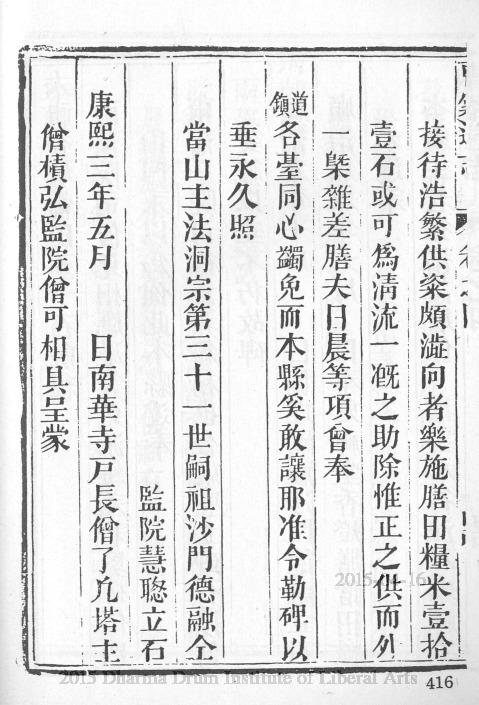 接待浩繁供粢頗澁向者樂施膳田糧米壹拾
壹石或可為清流一㮣之助除惟正之供而外
一槩雜差膳夫日晨等項會奉
鎮道各臺同心蠲免而本縣奚敢讓那准令勒碑以
垂永久照
當山主法洞宗第三十一世嗣祖沙門德融仝
監院慧聰立石
康熙三年五月　日南華寺戸長僧了允塔主
僧積弘監院僧可相具呈蒙
2015-04-16
2015 Dharma Drum Institute of Liberal Arts
416